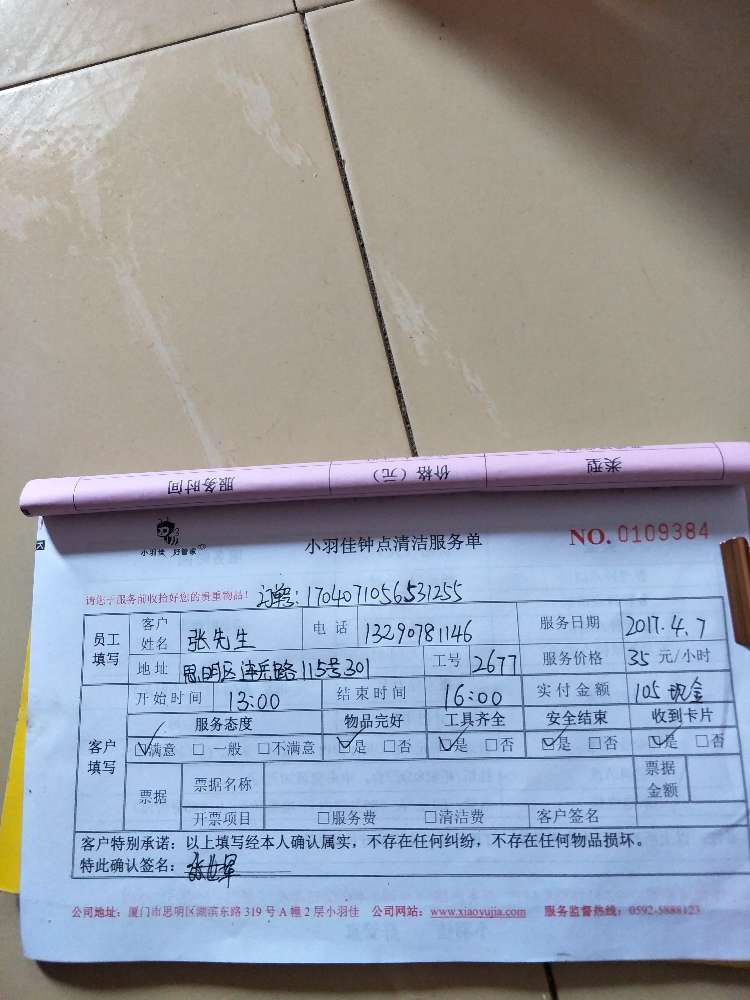 服务时间 价格（元） 类型
小羽佳 好管家
小羽佳钟点清洁服务单
NO. 0109384
请您于服务前收拾好您的贵重物品！ 订单号：1704071056531255
员工填写 客户姓名 张先生 电话 13290781146 服务日期 2017.4.7
地址 思明区莲岳路115号301 工号 2677 服务价格 35 元/小时
客户填写 开始时间 13:00 结束时间 16:00 实付金额 105现金
服务态度 物品完好 工具齐全 安全结束 收到卡片
☑满意 □一般 □不满意 ☑是 □否 ☑是 □否 ☑是 □否 ☑是 □否
票据 票据名称 票据金额
开票项目 □服务费 □清洁费 客户签名
客户特别承诺：以上填写经本人确认属实，不存在任何纠纷，不存在任何物品损坏。
特此确认签名：
公司地址：厦门市思明区湖滨东路 319 号 A 幢 2 层小羽佳 公司网站：www.xiaoyujia.com 服务监督热线：0592-5888123